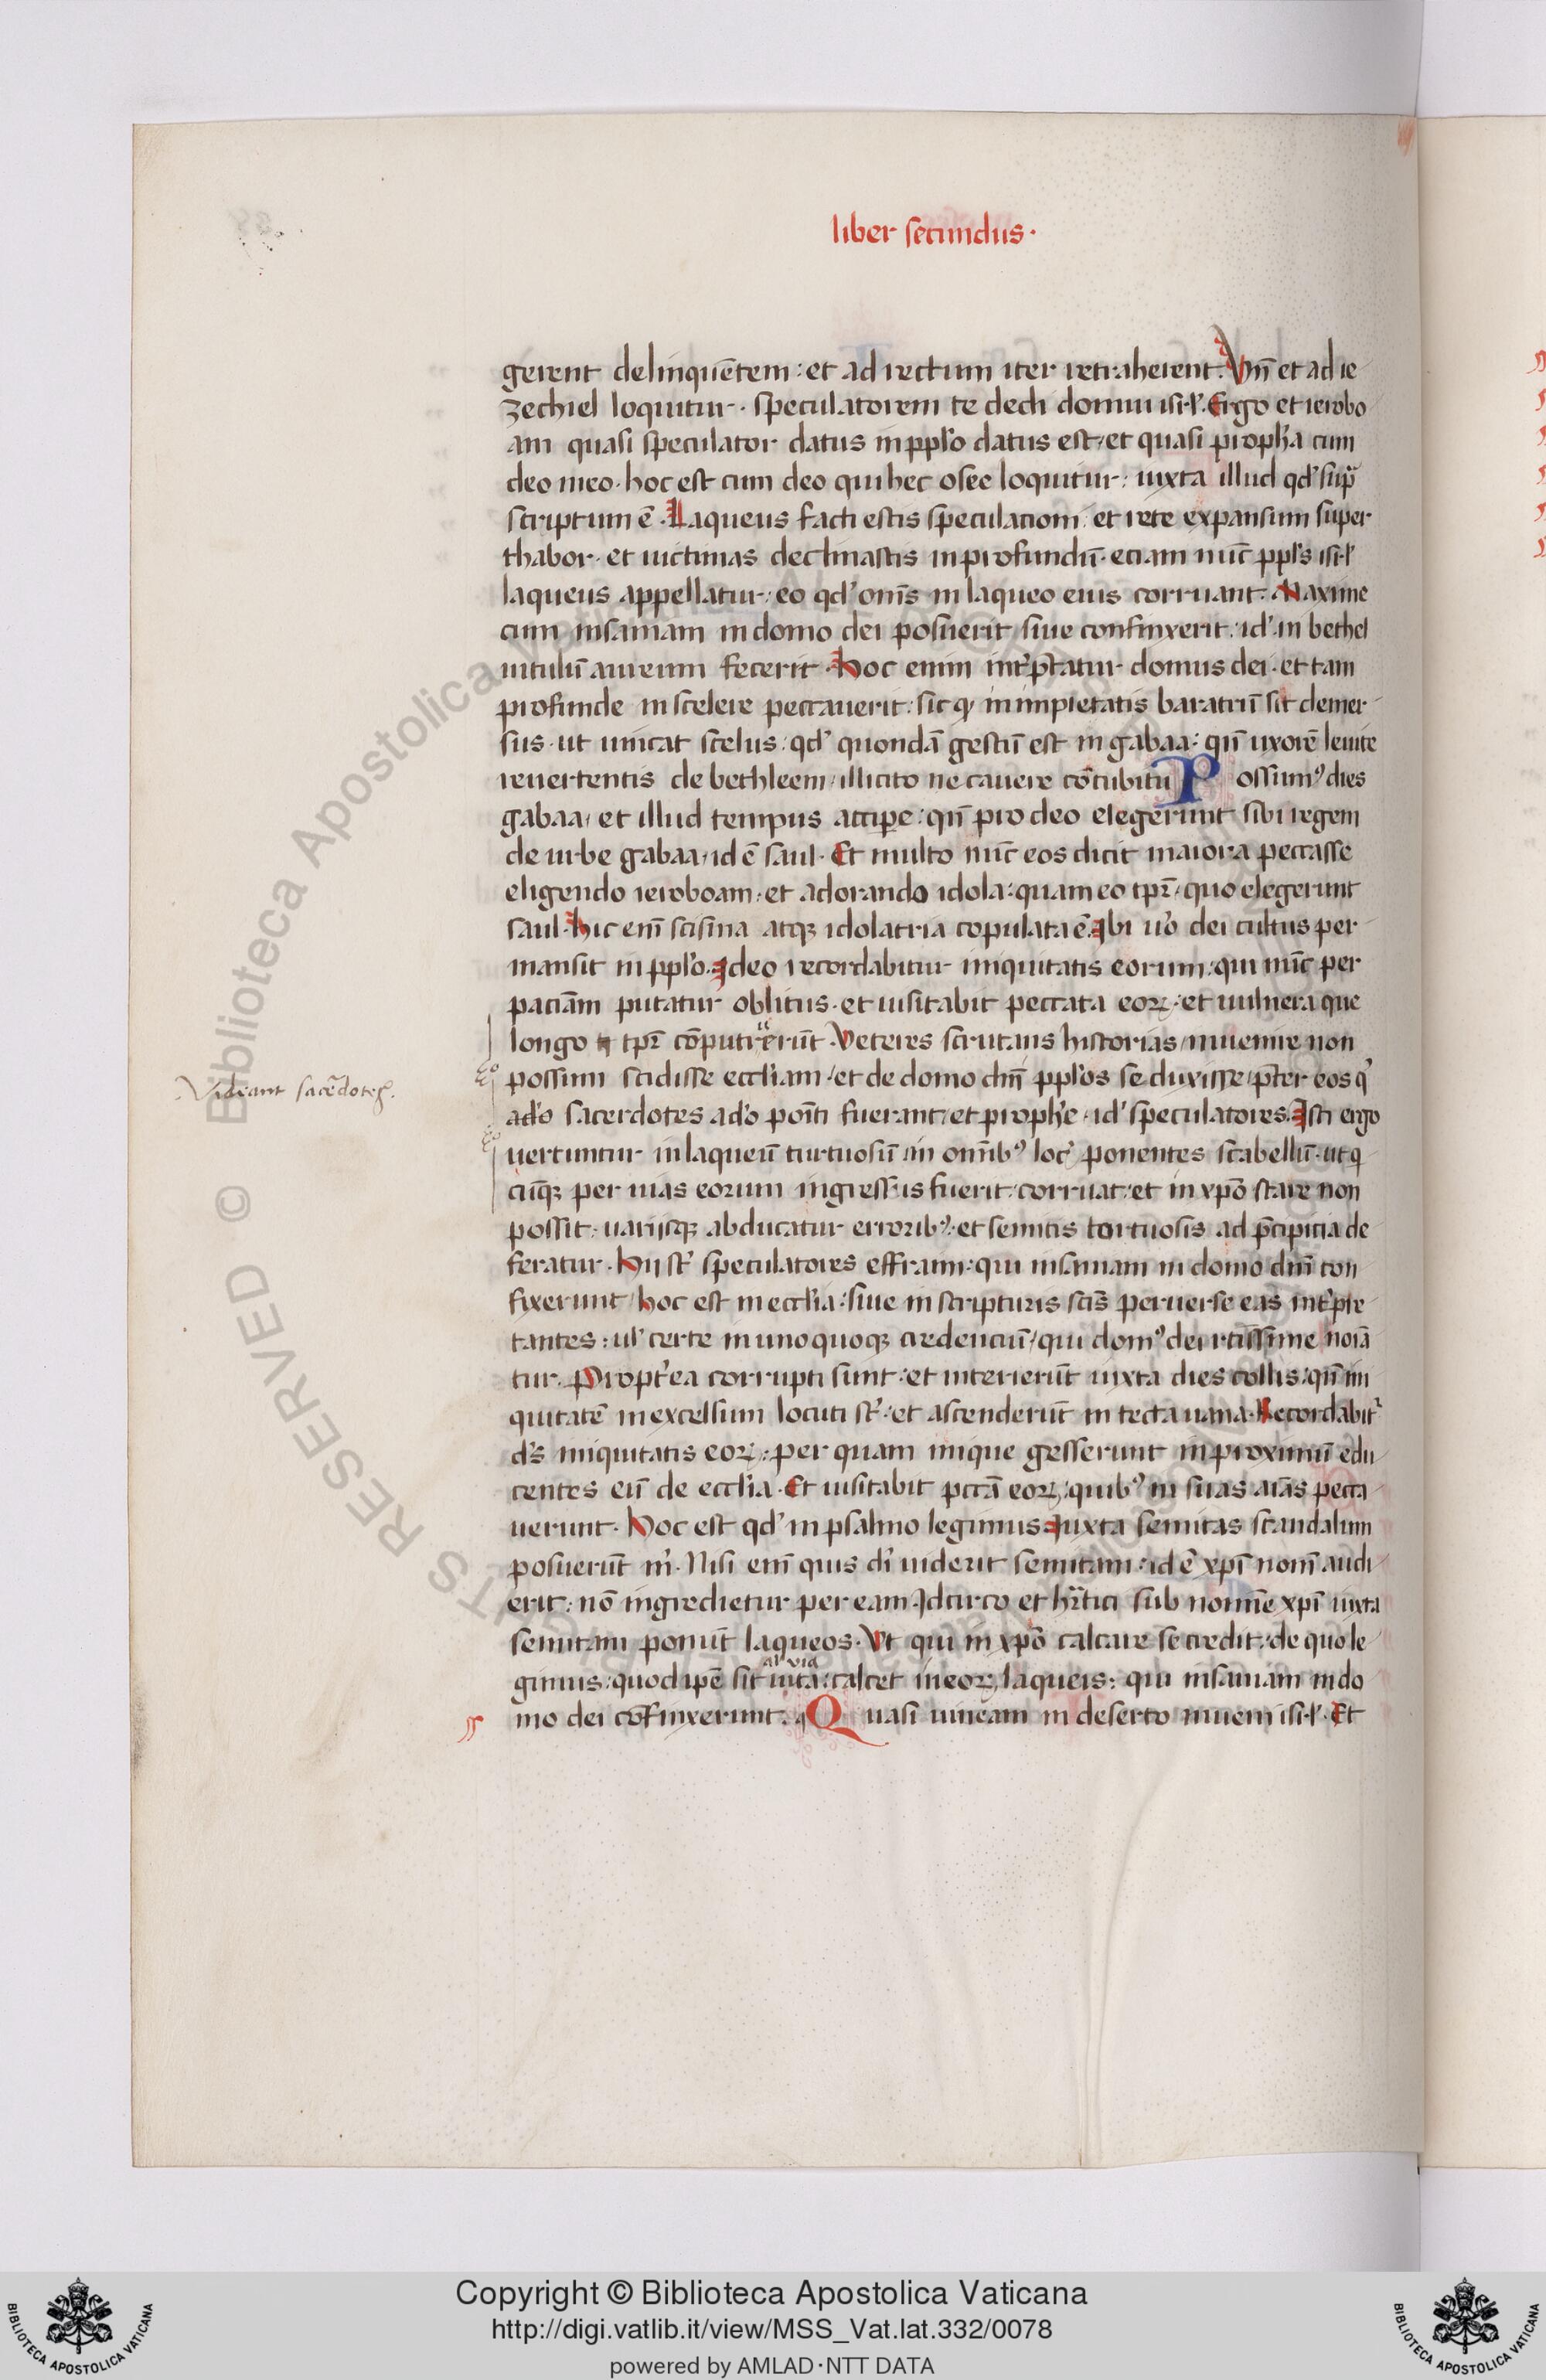 liber secundus·
gerent delinquētem: et ad rectum iter retraherent. Vñ et ad ie
zechiel loquitur· speculatorem te dedi domui isr̄l. Ergo et ierobo
am quasi speculator datus in pplo datus est, et quasi propha cum
deo meo· hoc est cum deo qui hec osee loquitur: iuxta illud qd' sup̄
scriptum ē. Laqueus facti estis speculationi, et rete expansum super
thabor· et uictimas declinastis in profundū· etiam nūc ppl's isr̄l
laqueus appellatur: eo qd' oms in laqueo eius corruant. Maxime
cum insaniam in domo dei posuerit siue confinxerit: id' in bethel
uitulū aureum fecerit. Hoc enim int'p̄tatur domus dei· et tam
profunde in scelere peccauerit: sic q; in impietatis baratrū sit demer
sus· ut uincat scelus: qd' quondā gestū est in gabaa: qn̄ uxorē leuite
reuertentis de bethleem, illicito necauere cōcubitu Possum9 dies
gabaa, et illud tempus accipe: qn̄ pro deo elegerunt sibi regem
de urbe gabaa, id ē saul· Et multo nūc eos dicit maiora peccasse
eligendo ieroboam, et adorando idola: quam eo tpr̄, quo elegerunt
saul. Hic em̄ scisma atq; idolatria copulata ē. Ibi u'o dei cultus per
mansit in pplo. Ideo recordabitur iniquitatis eorum: qui nūc per
paciām putatur oblitus· et uisitabit peccata eoꝝ: et uulnera que
longo tpr̄ cōputruerūt. Veteres scrutans historias, inuenire non
possum scidisse eccl'iam, et de domo dn̄i ppl'os seduxisse, p̄ter eos q'
Videant sacēdotes.
a d'o sacerdotes a d'o poīti fuerant, et prophe, id' speculatores. Isti ergo
uertuntur in laqueū turtuosū, in omīb9 loc' ponentes scabellū· ut q
cūq; per uias eorum ingressus fuerit, corruat: et in xp̄o stare non
possit· uarijsq; abducatur errorib9: et semitis tortuosis ad p̄cipitia de
feratur. Hij st̄ speculatores effraim: qui insaniam in domo dn̄i con
fixerunt, hoc est in eccl'ia: siue in scripturis sc̄is peruerse eas int'pre
tantes: ul' certe in unoquoq; credenciū, qui dom9 dei rc̄issime noīa
tur. Propt'ea corrupti sunt: et interierūt iuxta dies collis: qn̄ ini
quitatē in excelsum locuti st̄: et ascenderūt in tecta uana. Recordabit'
d's iniquitatis eoꝝ: per quam inique gesserunt in proximū edu
centes eū de eccl'ia. Et uisitabit pctā eoꝝ, quib9 in suas aīas pecca
uerunt. Hoc est qd' in psalmo legimus Iuxta semitas scandalum
posuerūt m'. Nisi em̄ quis di' uiderit semitam: id ē xp̄i nom̄ audi
erit: nō ingredietur per eam. Idcirco et h̄tici sub nomīe xp̄i iuxta
semitam ponūt laqueos. Vt qui in xp̄o calcare se credit: de quo le
al' via
gimus: quod ip̄e sit uita: calcet in eoꝝ laqueis: qui insaniam in do
mo dei cōfinxerunt. Quasi uineam in deserto inueni isr̄l. Et
Copyright © Biblioteca Apostolica Vaticana
http://digi.vatlib.it/view/MSS_Vat.lat.332/0078
powered by AMLAD·NTT DATA
BIBLIOTECA APOSTOLICA VATICANA
BIBLIOTECA APOSTOLICA VATICANA